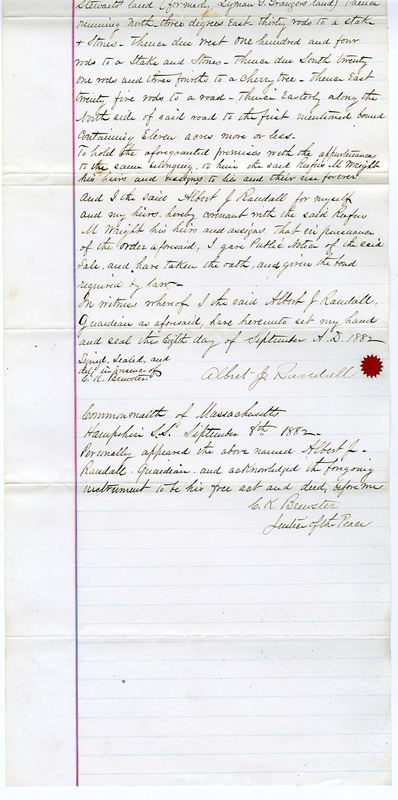 Stewarts land (formerly Lyman G. Grangers land) Thence
running North three degrees East thirty rods to a stake
+ Stones - Thence due West One hundred and four
rods to a Stake and Stones - Thence due South twenty
one rods and three fourths to a Cherry tree - Thence East
twenty five rods to a road - Thence Easterly along the
North side of said road to the first mentioned bound
Containing Eleven acres more or less.
To hold the aforegranted premises with the appurtenances
to the same belonging, to him the said Rufus M Wright
his heirs and assigns, to his and their use forever
And I the said Albert J Randall for myself
and my heirs, hereby covenant with the said Rufus
M Wright his heirs and assigns, that in pursuance
of the order aforesaid, I gave Public Notice of the said
Sale, and have taken the oath, and given the bond
required by law -
In witness whereof I the said Albert J. Randall,
Guardian as aforesaid, have hereunto set my hand
and seal the Eighth day of September A.D. 1882
Signed, Sealed, and
deld in presence of
C. K. Brewster
Albert J Randall
Commonwealth of Massachusetts
Hampshire S.S. September 8th 1882 -
Personally appeared the above named Albert J -
Randall Guardian and acknowledged the foregoing
instrument to be his free act and deed, before me
C. K Brewster
Justice of the Peace